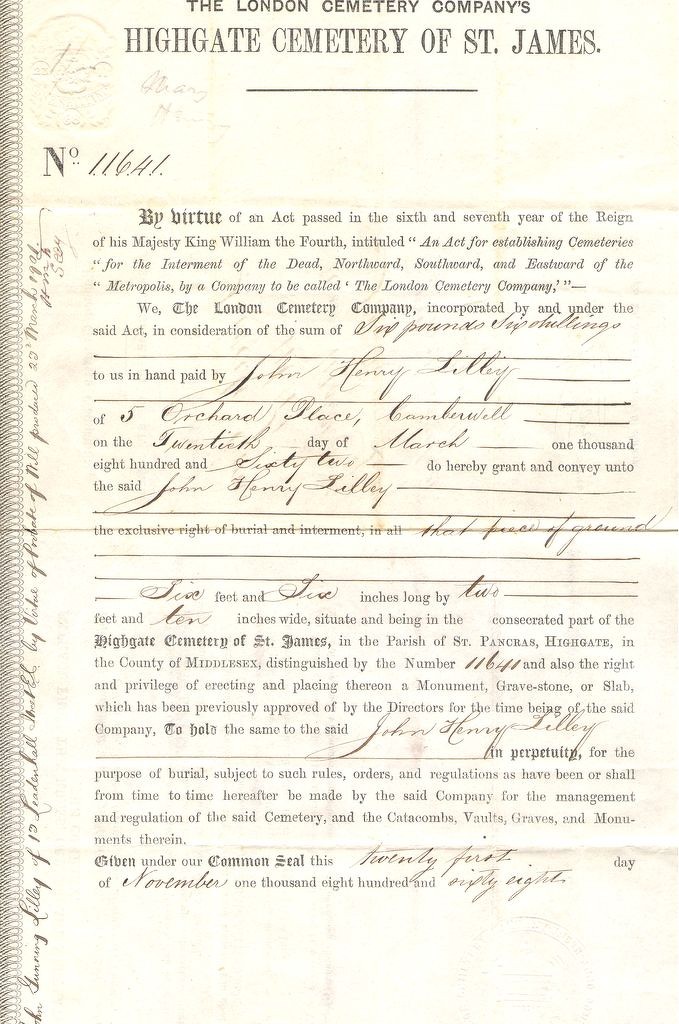 THE LONDON CEMETERY COMPANY'S
HIGHGATE CEMETERY OF ST. JAMES.
No. 11641.
By virtue of an Act passed in the sixth and seventh year of the Reign
of his Majesty King William the Fourth, intituled “ An Act for establishing Cemeteries
“ for the Interment of the Dead, Northward, Southward, and Eastward of the
“ Metropolis, by a Company to be called ‘ The London Cemetery Company,’ ”—
We, The London Cemetery Company, incorporated by and under the
said Act, in consideration of the sum of Six pounds Six shillings
to us in hand paid by John Henry Lilley
of 5 Orchard Place, Camberwell
on the Twentieth day of March one thousand
eight hundred and Sixty two do hereby grant and convey unto
the said John Henry Lilley
the exclusive right of burial and interment, in all that piece of ground
Six feet and Six inches long by two
feet and ten inches wide, situate and being in the consecrated part of the
Highgate Cemetery of St. James, in the Parish of ST. PANCRAS, HIGHGATE, in
the County of MIDDLESEX, distinguished by the Number 11641 and also the right
and privilege of erecting and placing thereon a Monument, Grave-stone, or Slab,
which has been previously approved of by the Directors for the time being of the said
Company, To hold the same to the said John Henry Lilley
in perpetuity, for the
purpose of burial, subject to such rules, orders, and regulations as have been or shall
from time to time hereafter be made by the said Company for the management
and regulation of the said Cemetery, and the Catacombs, Vaults, Graves, and Monu-
ments therein.
Given under our Common Seal this twenty first day
of November one thousand eight hundred and sixty eight
Lilley of 13 Leadenhall Street EC by Virtue of Probate of Will produced 25 March 1924